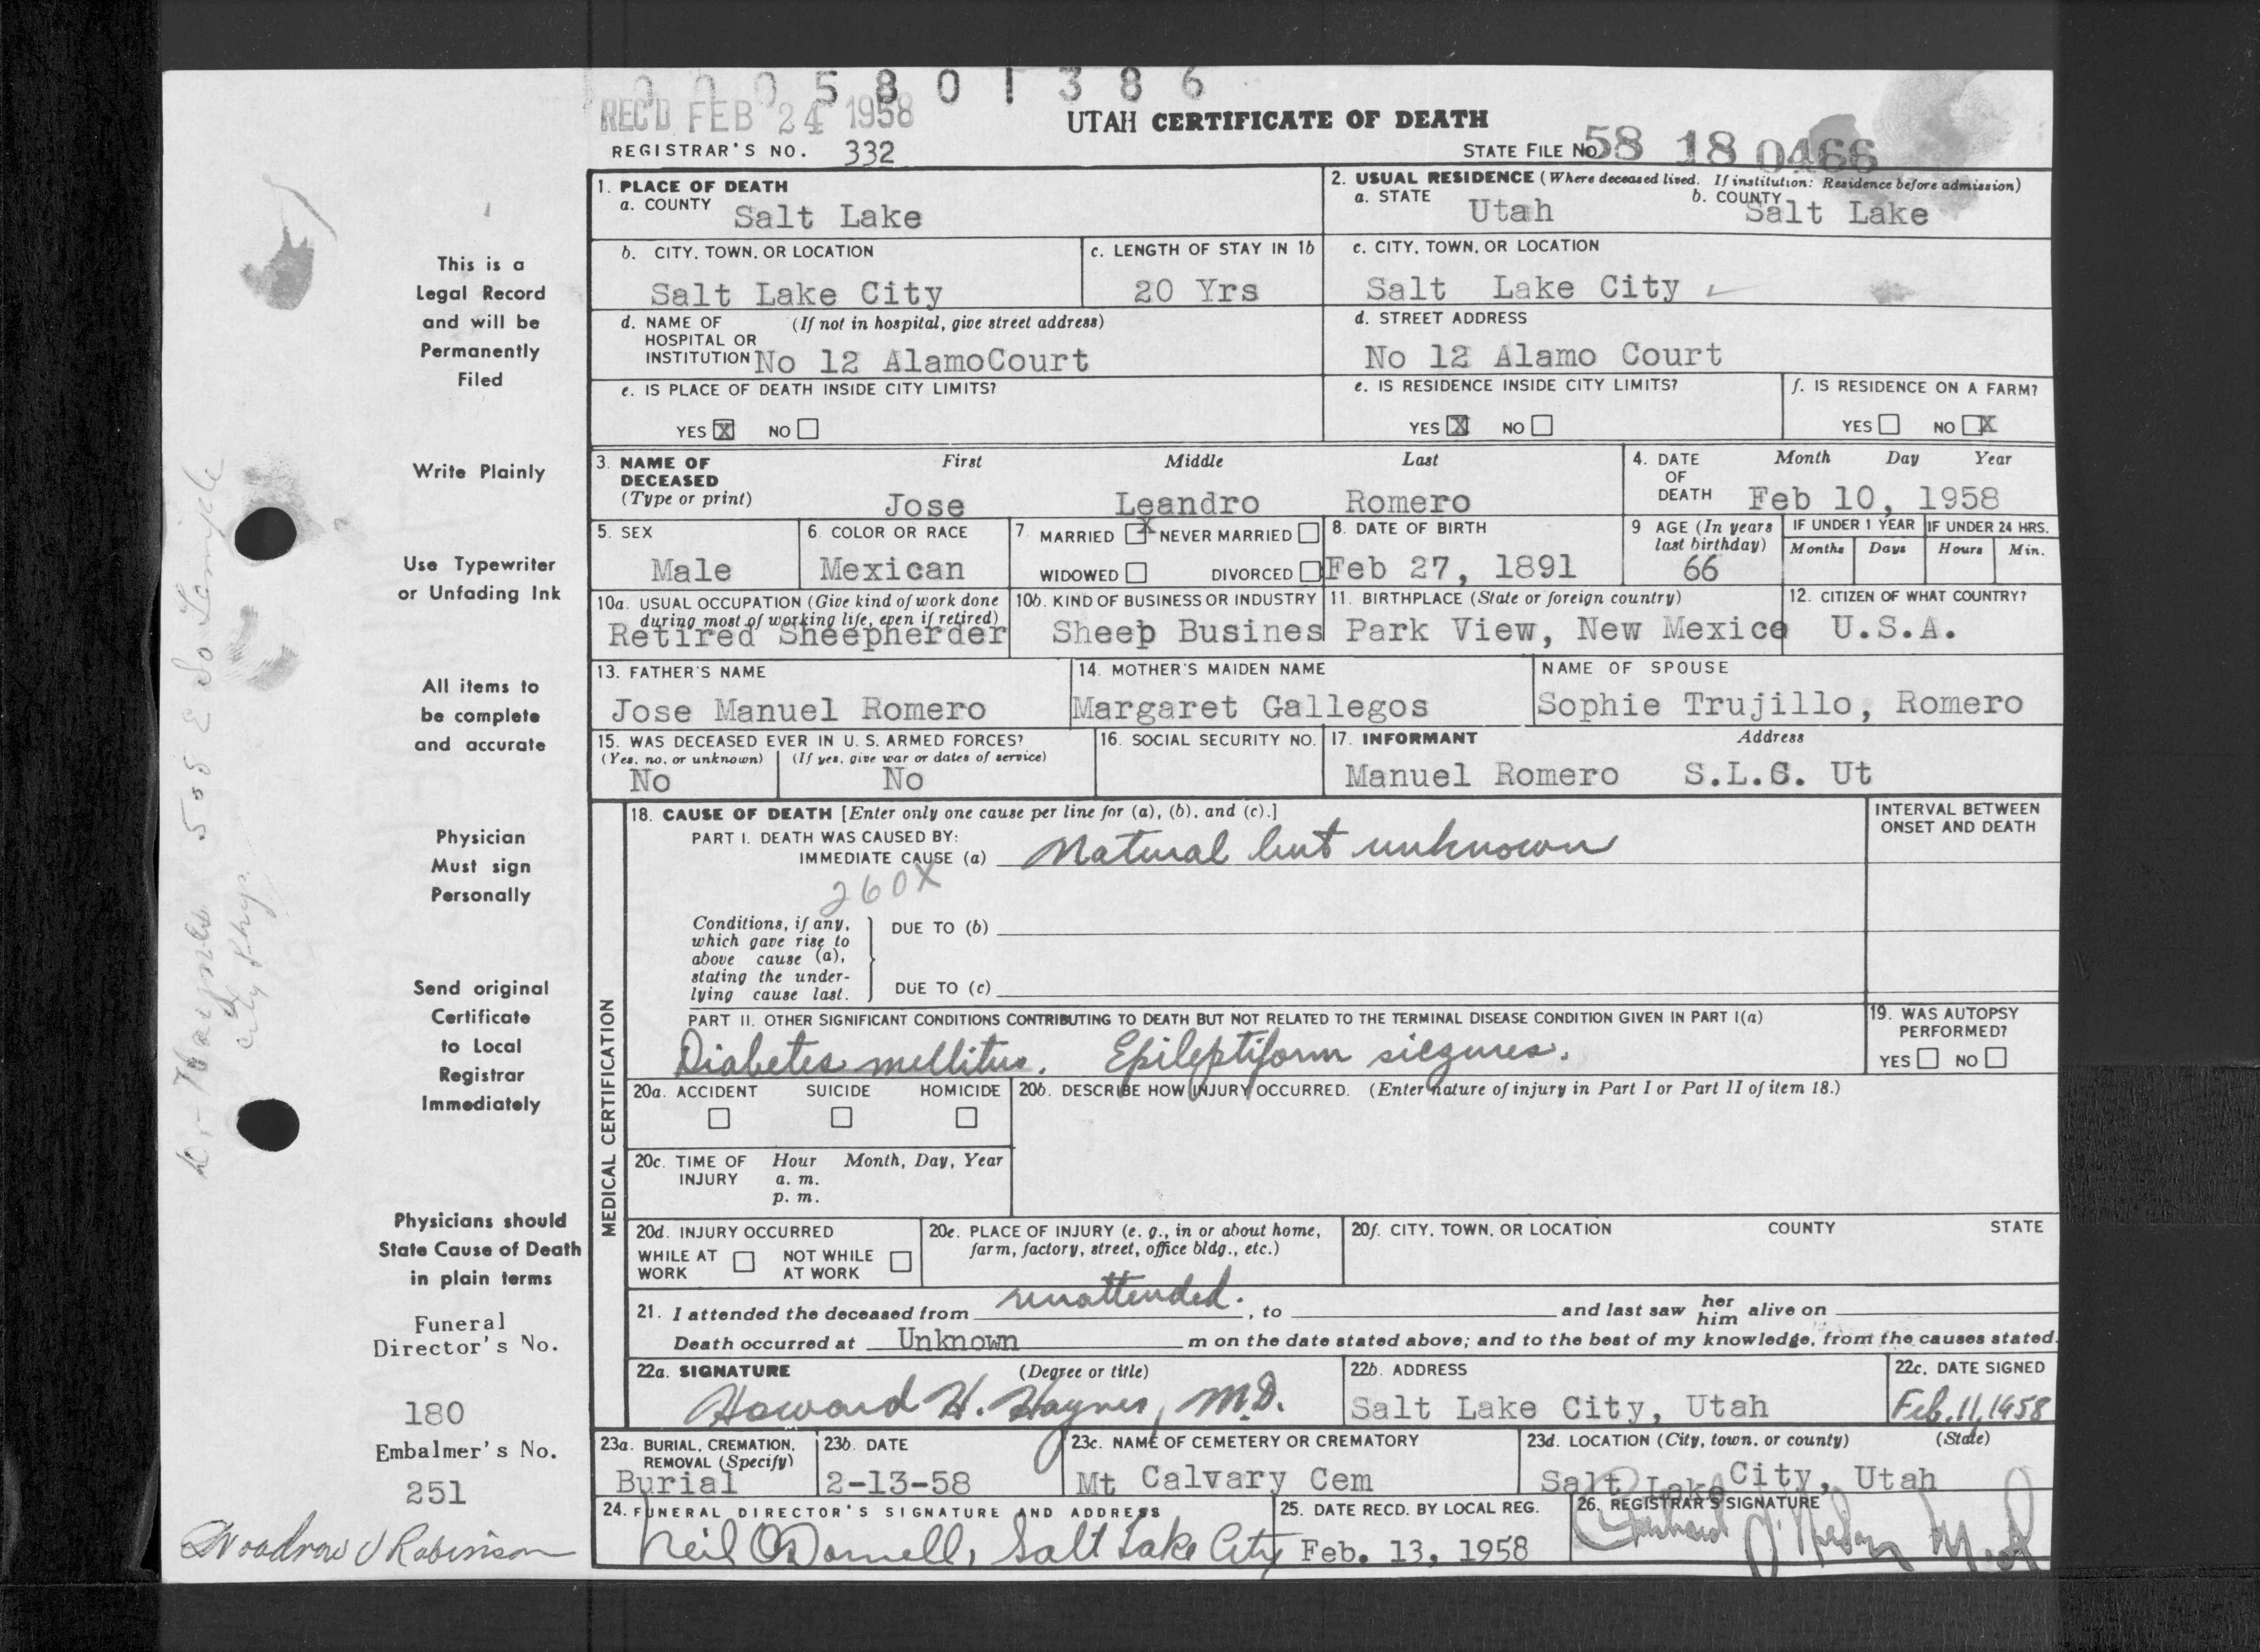 0005801386
REC'D FEB 24 1958
UTAH CERTIFICATE OF DEATH
REGISTRAR'S NO. 332
STATE FILE No 58 18 0466
1. PLACE OF DEATH
a. COUNTY Salt Lake
2. USUAL RESIDENCE (Where deceased lived. If institution: Residence before admission)
a. STATE Utah b. COUNTY Salt Lake
b. CITY, TOWN, OR LOCATION Salt Lake City
c. LENGTH OF STAY IN 1b 20 Yrs
c. CITY, TOWN, OR LOCATION Salt Lake City
d. NAME OF HOSPITAL OR INSTITUTION (If not in hospital, give street address) No 12 AlamoCourt
d. STREET ADDRESS No 12 Alamo Court
e. IS PLACE OF DEATH INSIDE CITY LIMITS?
YES X NO
e. IS RESIDENCE INSIDE CITY LIMITS?
YES X NO
f. IS RESIDENCE ON A FARM?
YES NO X
3. NAME OF DECEASED (Type or print)
First Middle Last
Jose Leandro Romero
4. DATE OF DEATH
Month Day Year
Feb 10, 1958
5. SEX Male
6. COLOR OR RACE Mexican
7. MARRIED X NEVER MARRIED
WIDOWED DIVORCED
8. DATE OF BIRTH Feb 27, 1891
9 AGE (In years last birthday) 66
IF UNDER 1 YEAR Months Days
IF UNDER 24 HRS. Hours Min.
10a. USUAL OCCUPATION (Give kind of work done during most of working life, even if retired)
Retired Sheepherder
10b. KIND OF BUSINESS OR INDUSTRY
Sheep Busines
11. BIRTHPLACE (State or foreign country)
Park View, New Mexico
12. CITIZEN OF WHAT COUNTRY?
U.S.A.
13. FATHER'S NAME
Jose Manuel Romero
14. MOTHER'S MAIDEN NAME
Margaret Gallegos
NAME OF SPOUSE
Sophie Trujillo, Romero
15. WAS DECEASED EVER IN U. S. ARMED FORCES?
(Yes, no, or unknown) (If yes, give war or dates of service)
No No
16. SOCIAL SECURITY NO.
17. INFORMANT Address
Manuel Romero S.L.C. Ut
MEDICAL CERTIFICATION
18. CAUSE OF DEATH [Enter only one cause per line for (a), (b), and (c).]
INTERVAL BETWEEN ONSET AND DEATH
PART I. DEATH WAS CAUSED BY:
IMMEDIATE CAUSE (a) Natural but unknown
260X
Conditions, if any, which gave rise to above cause (a), stating the underlying cause last.
DUE TO (b)
DUE TO (c)
PART II. OTHER SIGNIFICANT CONDITIONS CONTRIBUTING TO DEATH BUT NOT RELATED TO THE TERMINAL DISEASE CONDITION GIVEN IN PART I(a)
Diabetes mellitus. Epileptiform siezures.
19. WAS AUTOPSY PERFORMED?
YES NO
20a. ACCIDENT SUICIDE HOMICIDE
20b. DESCRIBE HOW INJURY OCCURRED. (Enter nature of injury in Part I or Part II of item 18.)
20c. TIME OF INJURY Hour Month, Day, Year
a. m.
p. m.
20d. INJURY OCCURRED
WHILE AT WORK NOT WHILE AT WORK
20e. PLACE OF INJURY (e. g., in or about home, farm, factory, street, office bldg., etc.)
20f. CITY, TOWN, OR LOCATION COUNTY STATE
21. I attended the deceased from unattended. , to and last saw her him alive on
Death occurred at Unknown m on the date stated above; and to the best of my knowledge, from the causes stated.
22a. SIGNATURE (Degree or title)
Howard H. Haynes, M.D.
22b. ADDRESS
Salt Lake City, Utah
22c. DATE SIGNED
Feb. 11, 1958
23a. BURIAL, CREMATION, REMOVAL (Specify)
Burial
23b. DATE
2-13-58
23c. NAME OF CEMETERY OR CREMATORY
Mt Calvary Cem
23d. LOCATION (City, town, or county) (State)
Salt Lake City, Utah
24. FUNERAL DIRECTOR'S SIGNATURE AND ADDRESS
Neil O'Donnell, Salt Lake City
25. DATE RECD. BY LOCAL REG.
Feb. 13, 1958
26. REGISTRAR'S SIGNATURE
This is a
Legal Record
and will be
Permanently
Filed
Write Plainly
Use Typewriter
or Unfading Ink
All items to
be complete
and accurate
Physician
Must sign
Personally
Send original
Certificate
to Local
Registrar
Immediately
Physicians should
State Cause of Death
in plain terms
Funeral
Director's No.
180
Embalmer's No.
251
Woodrow J Robinson
Dr Haynes 555 E So Temple
City Phys.